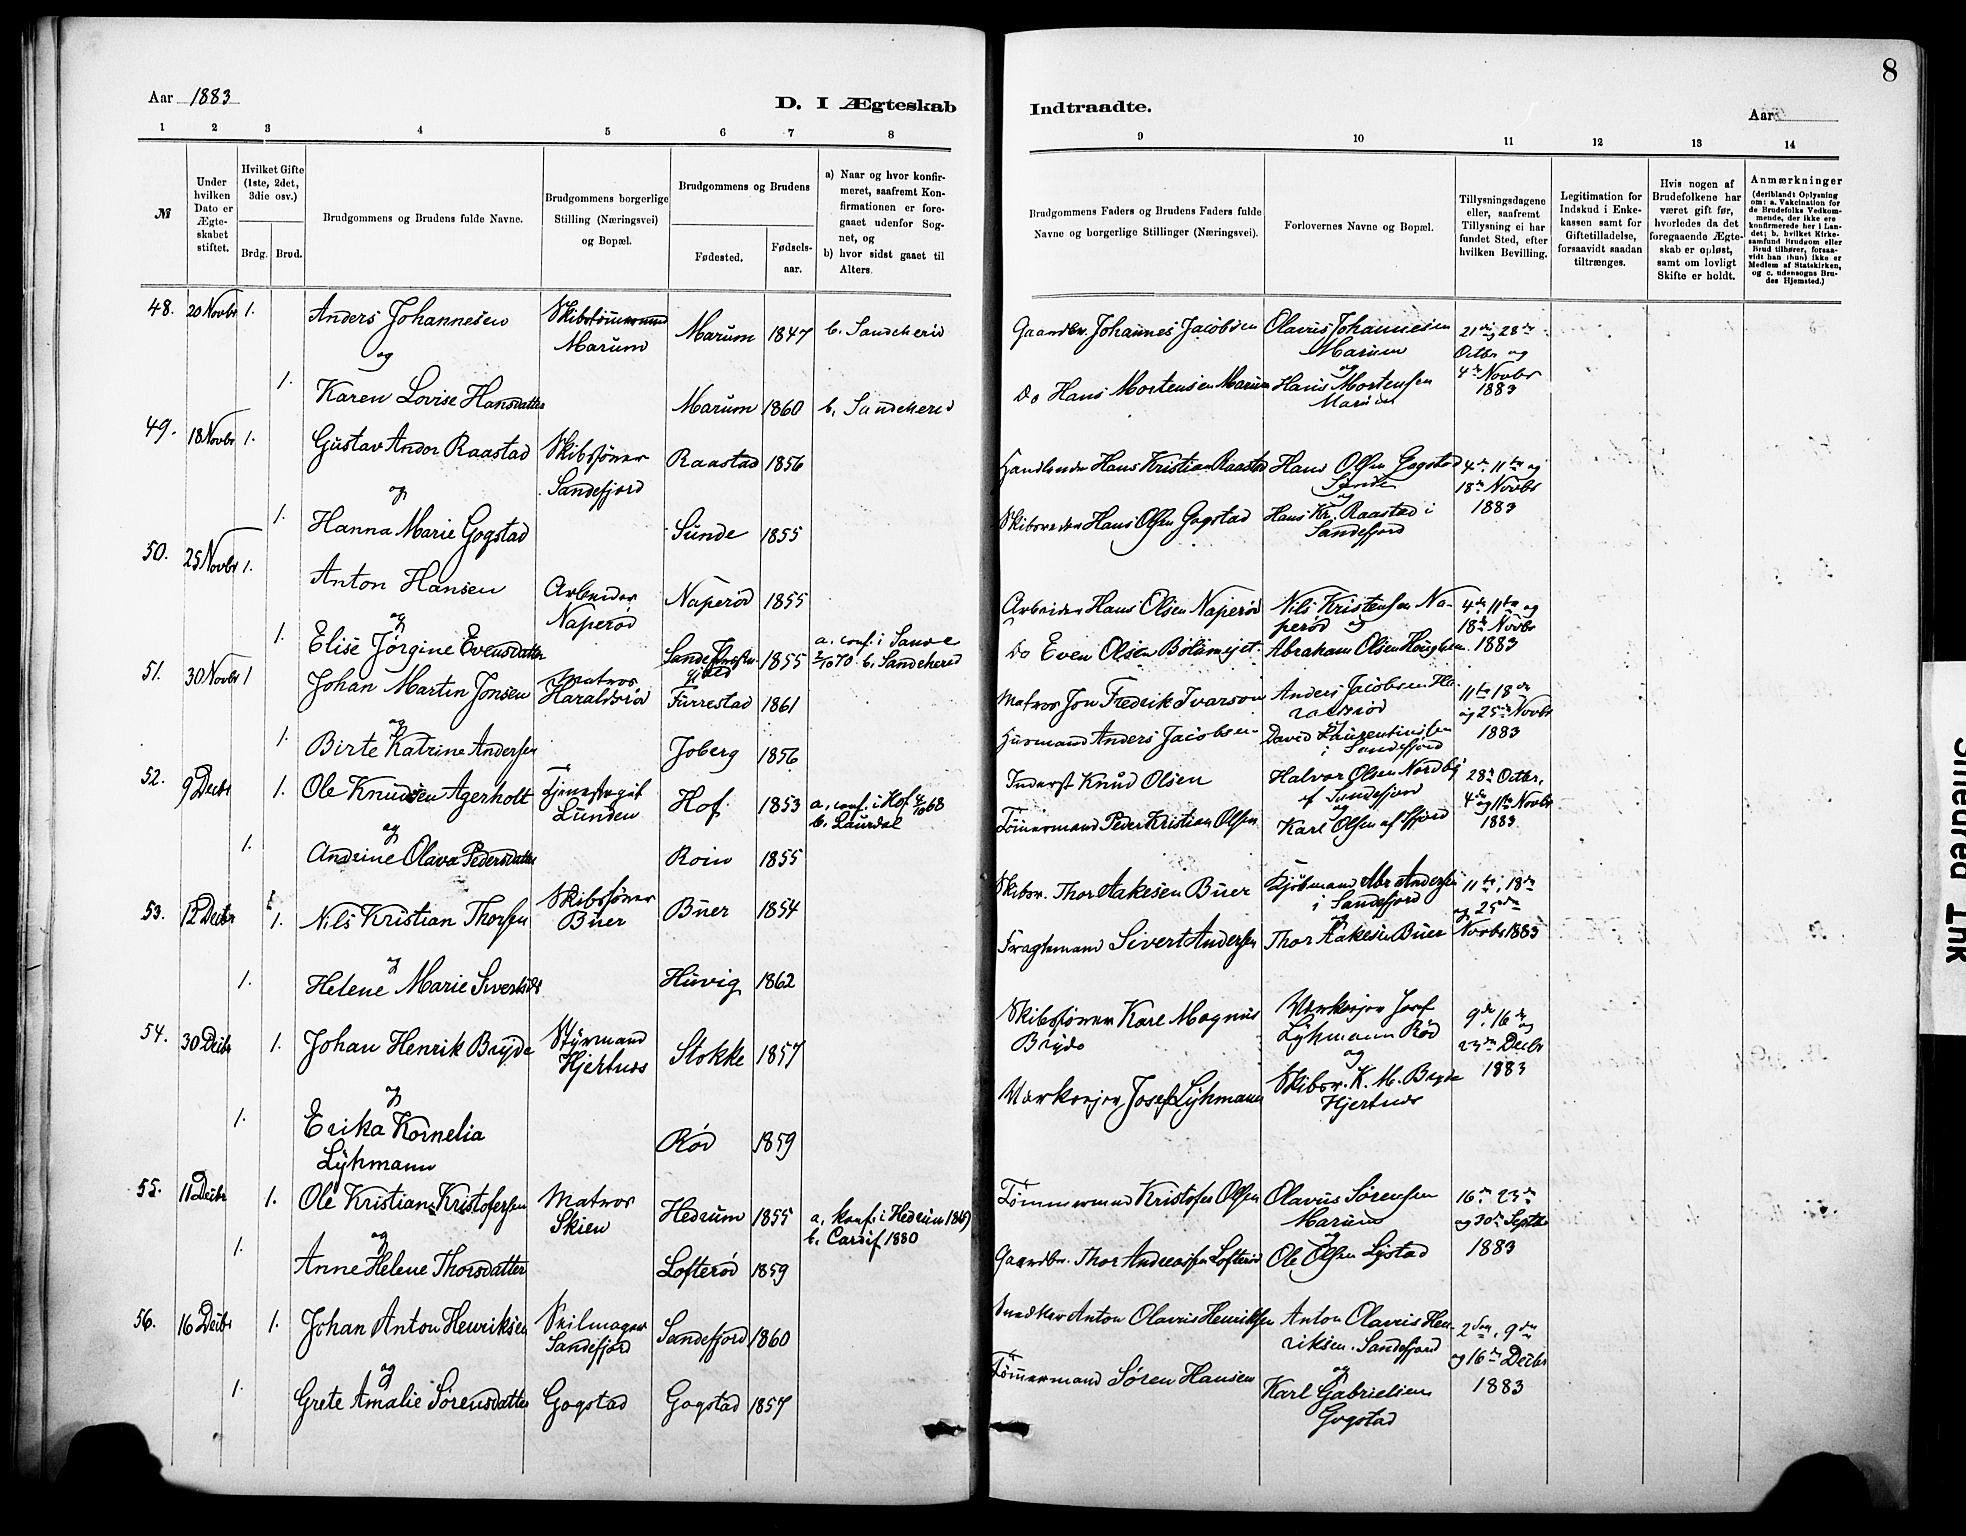 8
Aar 1883
D. I Ægteskab
Indtraadte.
Aar
1 2 3 4 5 6 7 8
9 10 11 12 13 14
№
Under hvilken Dato er Ægte-skabet stiftet.
Hvilket Gifte (1ste, 2det, 3die osv.)
Brdg. Brud.
Brudgommens og Brudens fulde Navne.
Brudgommens borgerlige Stilling (Næringsvei) og Bopæl.
Brudgommens og Brudens
Fødested.
Fødsels-aar.
a) Naar og hvor konfir-meret, saafremt Kon-firmationen er fore-gaaet udenfor Sog-net, og
b) hvor sidst gaaet til Alters.
Brudgommens Faders og Brudens Faders fulde Navne og borgerlige Stillinger (Næringsvei).
Forlovernes Navne og Bopæl.
Tillysningsdagene eller, saafremt Tillysning ei har fundet Sted, efter hvilken Bevilling.
Legitimation for Indskud i Enke-kassen samt for Giftetilladelse, forsaavidt saadan tiltrænges.
Hvis nogen af Brudefolkene har været gift før, hvorledes da det foregaaende Ægte-skab er opløst, samt om lovligt Skifte er holdt.
Anmærkninger
(deriblandt Oplysning om: a. Vakcination for de Brudefolks Vedkom-mende, der ikke ere konfirmerede her i Lan-det; b. hvilket Kirke-samfund Brudgom eller Brud tilhører, forsaa-vidt han (hun) ikke er Medlem af Statskirken, og c. udensogns Bru-des Hjemsted.)
48. 20 Novbr 1. Anders Johannesen
og
Marum
Marum 1847 b. Sandeherid
Gaardbr. Johannes Jacobsen
Olavus Johannesen
Marum
og
21de og 28de
Octbr og
4de Novbr
1883
1. Karen Lovise Hansdatter
Marum 1860 b. Sandehered
Do Hans Mortensen Marum
Hans Mortensen
Marum
49. 18 Novbr 1. Gustav Andor Raastad
og
Skibsfører
Sandefjord
Raastad 1856
Handlende Hans Kristian Raastad
Hans Olsen Gogstad
Sunde
og
4de 11te og
18de Novbr
1883
1. Hanna Marie Gogstad
Sunde 1855
Hans Olsen Gogstad
Hans Kr. Raastad i
Sandefjord
50. 25 Novbr 1. Anton Hansen
og
Arbeider
Naperød
Naperød 1855
Arbeider Hans Olsen Naperød
Nils Kristensen Na-
perød og
4de 11te og
18de Novbr
1883
1. Elise Jørgine Evensdatter
1855
a. conf. i Sande
2/10 70 b. Sandehered
Do Even Olsen
Abraham Olsen Haughem
51. 30 Novbr 1 Johan Martin Jonsen
og
Matros
Haraldsrød
Furrestad 1861
Matros Jon Fredrik Ivarson
Anders Jacobsen Ha-
raldsrød
11te 18de
og 25de Novbr
1883
1. Birte Katrine Andersen
Joberg 1856
Husmand Anders Jacobsen
David Laurentiussen
i Sandefjord
52. 9 Decbr 1. Ole Knudsen Agerholt
og
Lunden
Hof 1853
a. conf. i Hof 4/10 68
b. Laurdal
Inderst Knud Olsen
Halvor Olsen Nordby
af Sandefjord
og
28de Octbr,
4de og 11te Novbr
1883
1. Andrine Olava Pedersdatter
Roin 1855
Tømermand Peder Kristian Olsen
Karl Olsen af Sfjord
53. 12 Decbr 1. Nils Kristian Thorsen
og
Skibsfører
Buer
Buer 1854
Skibsr. Thor Aakesen Buer
Kjøbmand Abr Andersen
i Sandefjord
og
11te, 18de
og 25de
Novbr 1883
1. Helene Marie Sivertsdt
Huvig 1862
Fragtemand Sivert Andersen
Thor Aakesen Buer
54. 30 Decbr 1. Johan Henrik Bryde
og
Styrmand
Hjertnes
Stokke 1857
Skibsfører Karl Magnus
Bryde
Værkseier Josef
Lyhmann Rød
og
9de, 16de
og
23de Decbr
1883
1. Erika Kornelia
Lyhmann
Rød 1859
Værkseier Josef Lyhmann
Skibsr. K. M. Bryde
Hjertnes
55. 11 Decbr 1. Ole Kristian Kristofersen
og
Matros
Skien
Hedrum 1855
b. Cardif 1880
Tømmermand Kristofer Olsen
Olavus Sørensen
Marum
og
16de 23de
og 30de Septbr
1883
1. Anne Helene Thorsdatter
Lofterød 1859
Gaardbr. Thor Andreassen Lofterød
Ole Olsen Lystad
56. 16 Decbr 1. Johan Anton Henriksen
og
Seilmager
Sandefjord
Sandefjord 1860
Snedker Anton Olavus Henriksen
Anton Olavus Hen-
riksen. Sandefjord
og
2den, 9de
og 16de Decbr
1883
1. Grete Amalie Sørensdatter
Gogstad
Gogstad 1857
Tømermand Søren Hansen
Karl Gabrielsen
Gogstad